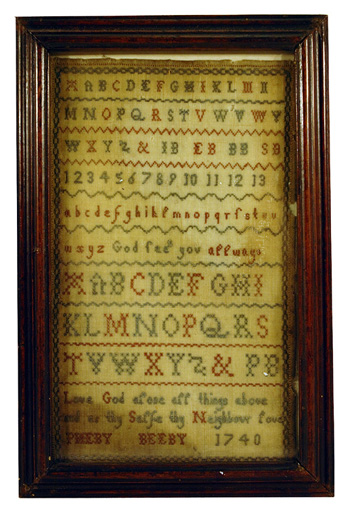 A A B C D E F G H I K L M I
M N O P Q R S T V W V W Y
W X Y Z & I B E B B B S B
1 2 3 4 5 6 7 8 9 10 11 12 13
a b c d e f g h i k l m n o p q r ſ s t u
w x y z God ſee you allways
A A B C D E F G H I
K L M N O P Q R S
T V W X Y Z & P B
Love God above all things above
and as thy Selfe thy Neighbour love
PHEBY BEEBY 1740